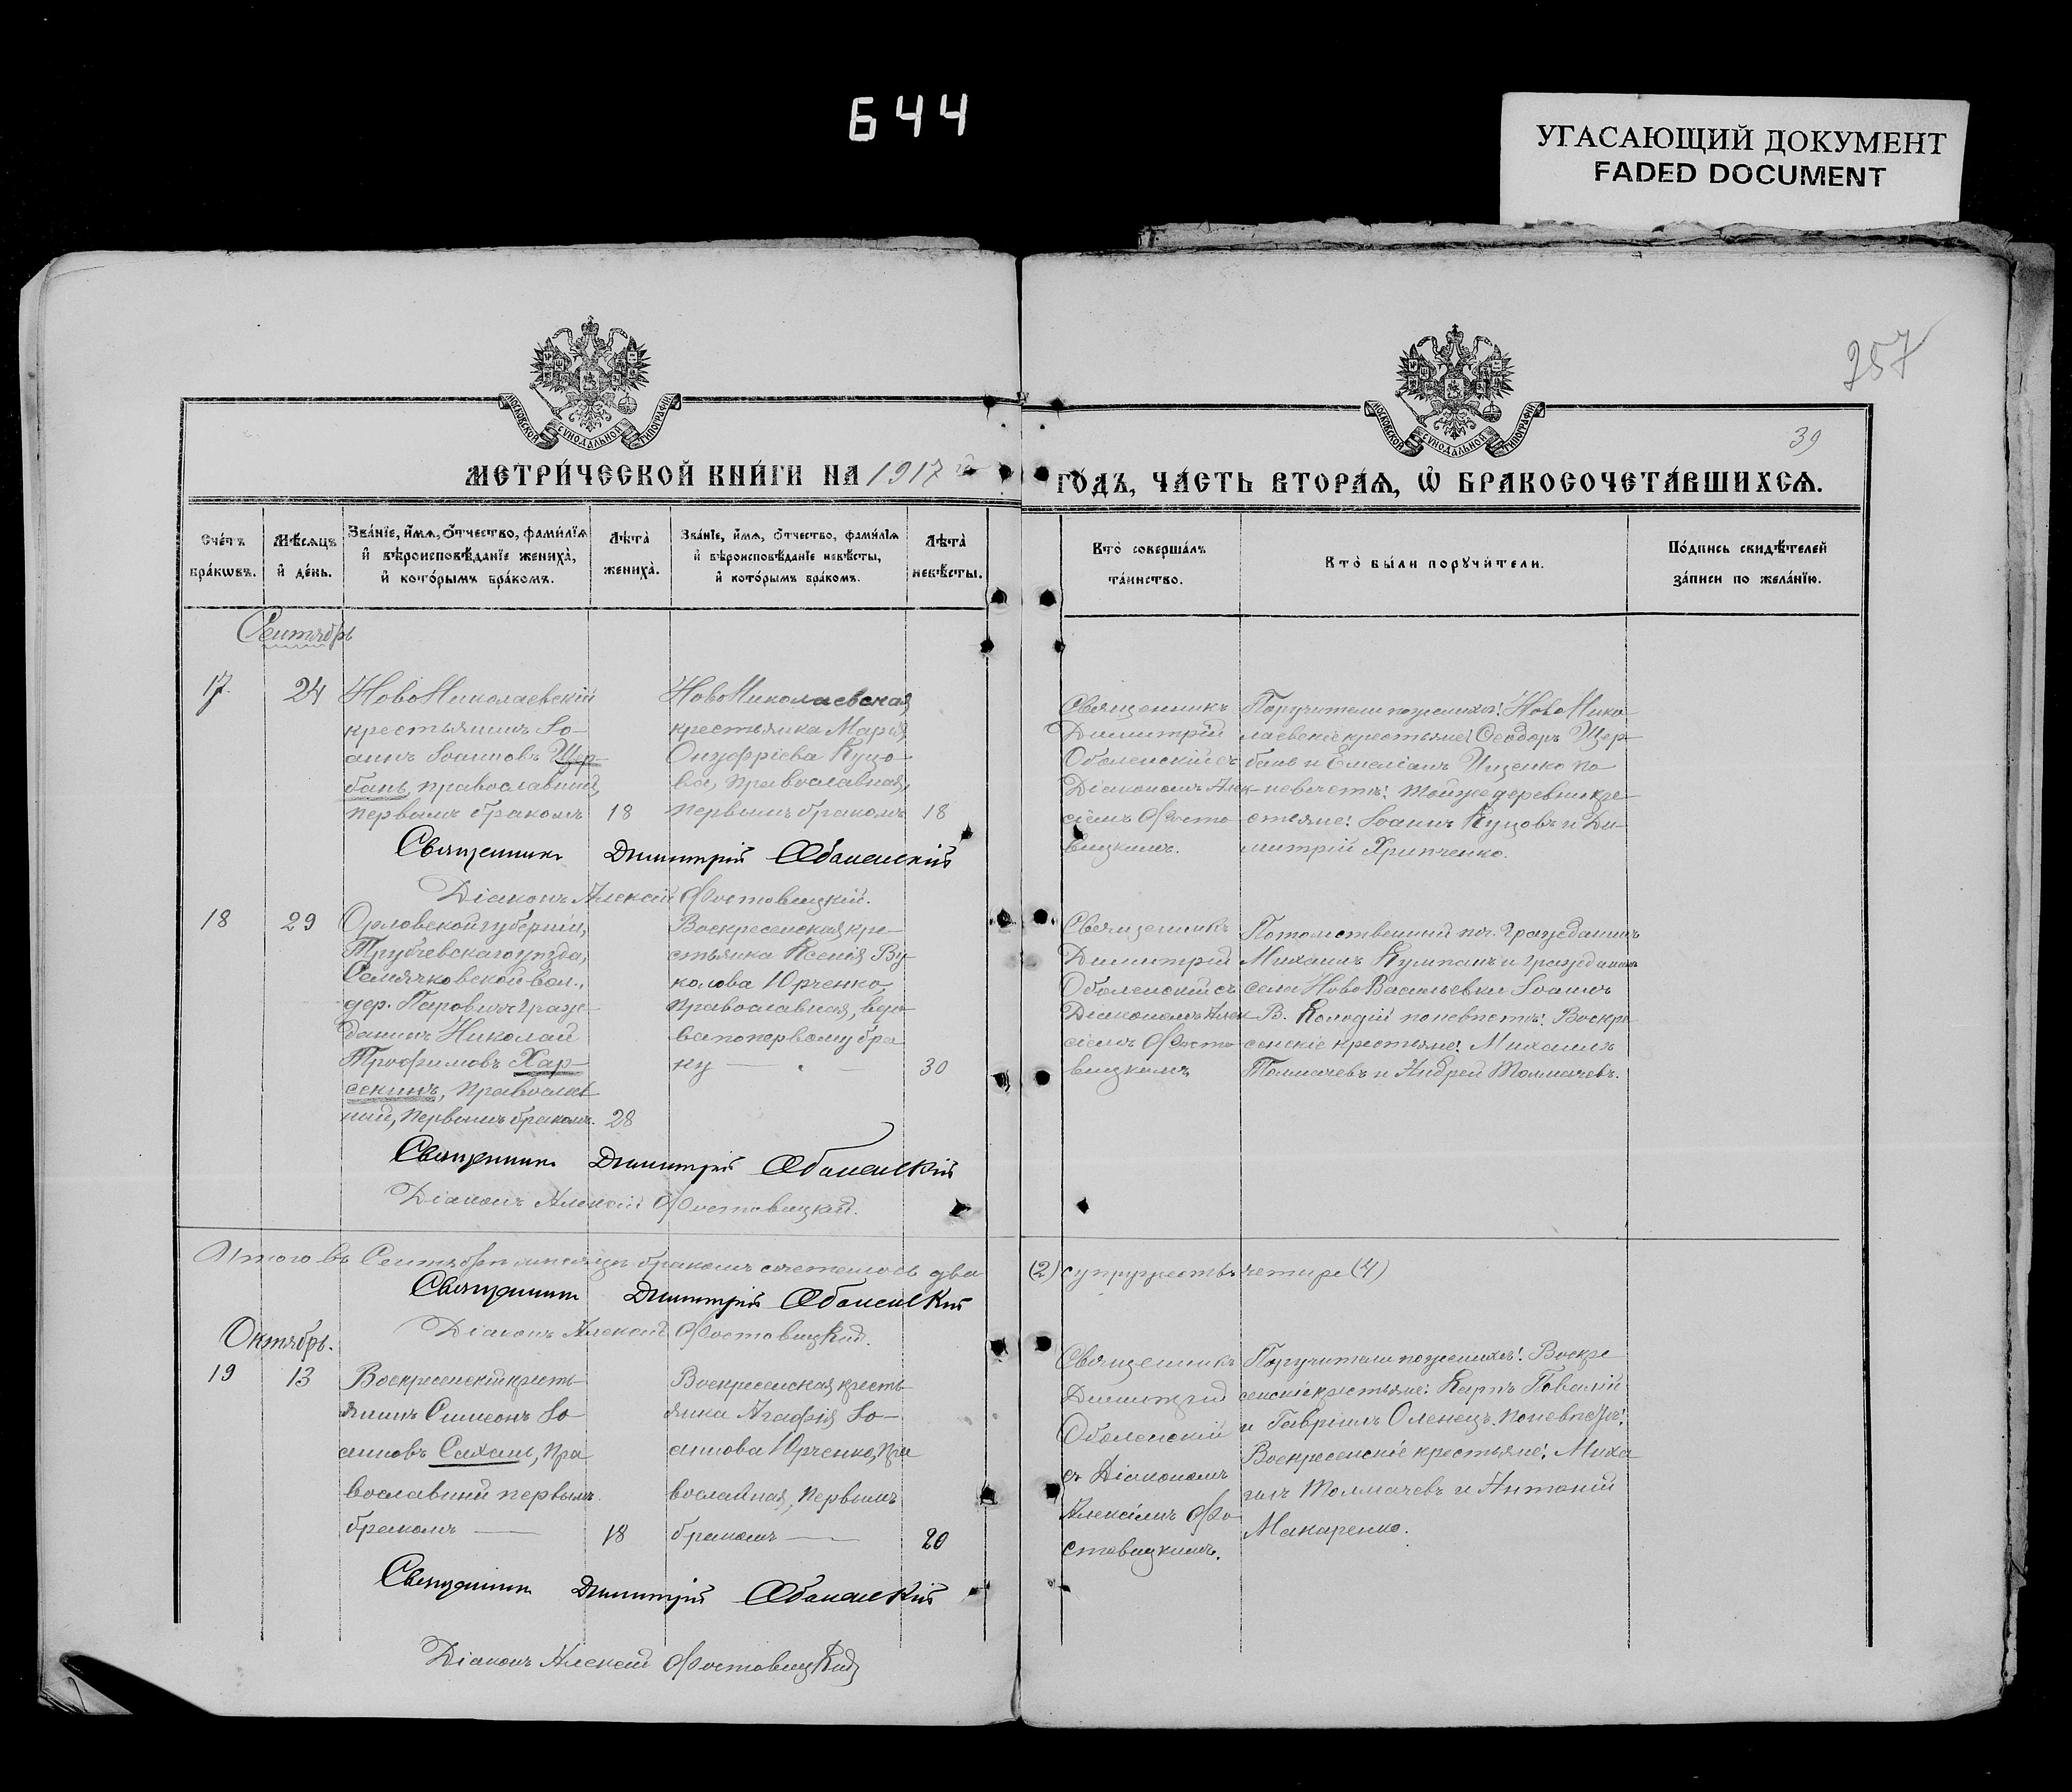 644
УГАСАЮЩИЙ ДОКУМЕНТ
FADED DOCUMENT
257
39
МОСКОВСКОЙ СѴНОДАЛЬНОЙ ТИПОГРАФІИ
МОСКОВСКОЙ СѴНОДАЛЬНОЙ ТИПОГРАФІИ
МЕТРИ́ЧЕСКОЙ КНИ́ГИ НА 1917 й
ГО́ДЪ, ЧА́СТЬ ВТОРА́Ѧ, Ѡ҆ БРАКОСОЧЕТА́ВШИХСѦ.
Сче́тъ
бра́кѡвъ.
Мѣ́сѧцъ
и҆ де́нь.
Зва́нїе, и҆́мѧ, ѻ҆́тчество, фами́лїѧ
и҆ вѣроисповѣ́данїе жениха̀,
и҆ кото́рымъ бра́комъ.
Лѣта̀
жениха̀.
Зва́нїе, и҆́мѧ, ѻ҆́тчество, фами́лїѧ
и҆ вѣроисповѣ́данїе невѣ́сты,
и҆ кото́рымъ бра́комъ.
Лѣта̀
невѣ́сты.
Кто̀ соверша́лъ
та́инство.
Кто̀ бы́ли порꙋчи́тели.
По́дпись свидѣ́телей
за́писи по жела́нїю.
Сентябрь
17.
24
НовоНиколаевскій
крестьянинъ Іо-
аннъ Іоанновъ Щер-
бань, православный,
первымъ бракомъ
18
НовоНиколаевская
крестьянка Марія
Онуфріева Куцо-
ва, православная,
первымъ бракомъ
18
Священникъ
Димитрій
Оболенскій съ
Діакономъ Алек-
сіемъ Фосто-
вицкимъ.
Поручители по женихѣ: НовоНико-
лаевскіе крестьяне: Ѳеодоръ Щер-
бань и Емеліанъ Ищенко по
невѣстѣ: той же деревни кре-
стьяне: Іоаннъ Куцовъ и Ди-
митрій Хрипченко.
Священникъ Димитрій Оболенскій
Діаконъ Алексій Фостовицкій.
18
29
Орловской губерніи,
Трубчевскаго уѣзда,
Семячковской вол.,
дер. граж-
данинъ Николай
Трофимовъ Хар-
секинъ, православ
ный, первымъ бракомъ.
28
Воскресенская кре-
стьянка Ксенія Ву-
колова Юрченко,
православная, вдо-
ва по первому бра
ку
30
Священникъ
Димитрій
Оболенскій съ
Діакономъ Алек
сіемъ Фосто
вицкимъ
Потомственный поч. гражданинъ
Михаилъ Кумпанъ и гражданинъ
села НовоВасильевки Іоаннъ
В. Колодій по невѣстѣ: Воскре
сенскіе крестьяне: Михаилъ
Толмачевъ и Андрей Толмачевъ.
Священникъ Димитрій Оболенскій
Діаконъ Алексій Фостовицкій.
Итого въ Сентябрѣ мѣсяцѣ бракомъ сочеталось два
(2) супружествъ четыре (4)
Священникъ Димитрій Оболенскій
Діаконъ Алексій Фостовицкій.
Октябрь.
19
13
Воскресенскій кресть-
янинъ Симеонъ Іо
анновъ Сахань, пра
вославный первымъ
бракомъ
18
Воскресенская кресть-
янка Агафія Іо-
аннова Юрченко, пра
вославная, первымъ
бракомъ
20
Священникъ
Димитрій
Оболенскій
съ Діакономъ
Алексіемъ Фо
стовицкимъ.
Поручители по женихѣ: Воскре
сенскіе крестьяне: Карпъ Повалій
и Гавріилъ Оленецъ. по невѣстѣ:
Воскресенскіе крестьяне: Миха
илъ Толмачевъ и Антоній
Макаренко.
Священникъ Димитрій Оболенскій
Діаконъ Алексій Фостовицкій